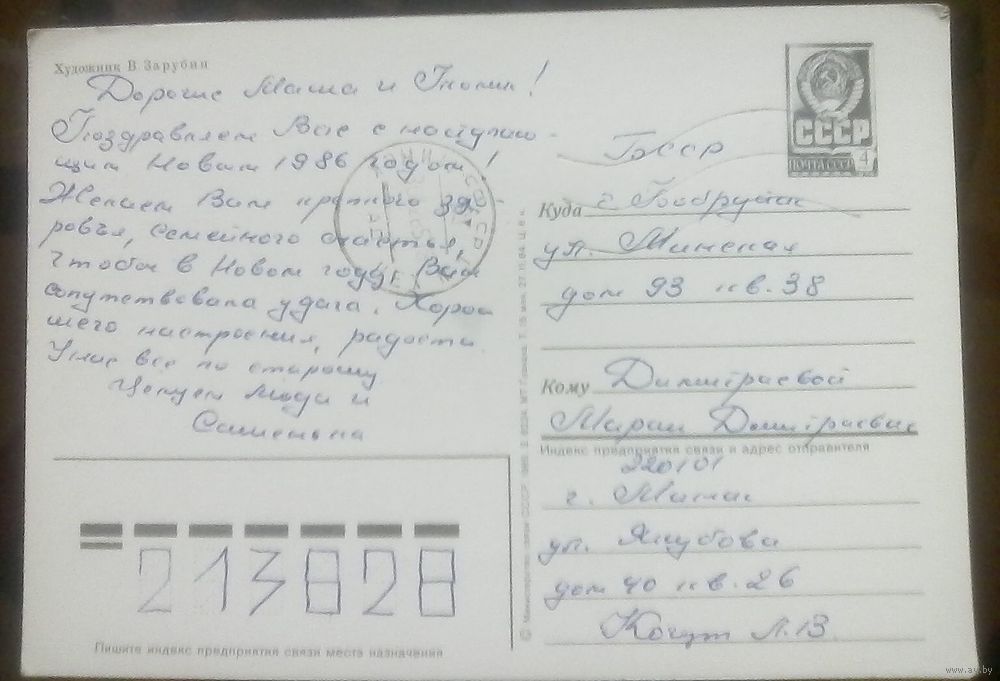 Художник В. Зарубин
Дорогие Маша и
Поздравляем Вас с наступаю-
щим Новым 1986 годом!
Желаем Вам крепкого здо
ровья, семейного счастья,
Чтобы в Новом году Вам
сопутствовала удача. Хорош
шего настроения, радости.
У нас все по старому
Целуем Люда и
СССР
ПОЧТА СССР 4
БССР
Куда г. Бобруйск
ул. Минская
дом 93 кв. 38
Кому Димитриевой
Марии Дмитриевне
Индекс предприятия связи и адрес отправителя
220101
г. Минск
ул. Якубова
дом 40 кв. 26
Когут Л. В.
213828
Пишите индекс предприятия связи места назначения
www.ay.by